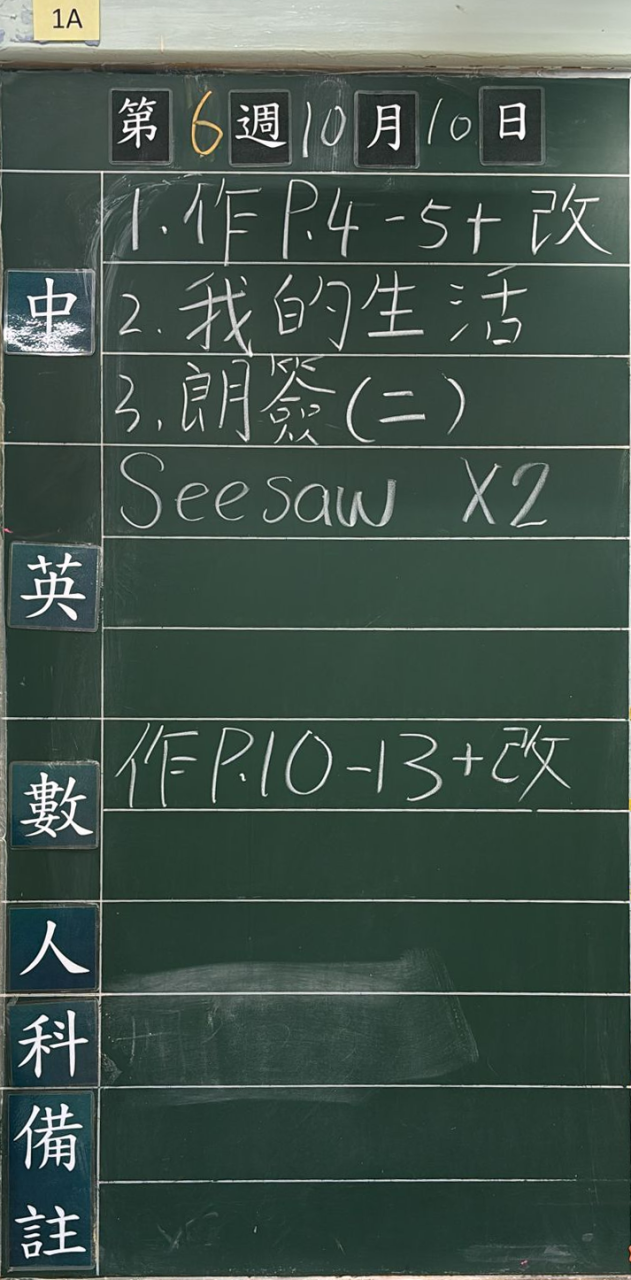 1A
第6週10月10日
中
1.作P.4-5+改
2.我的生活
3.朗簽(二)
英
Seesaw X2
數
作P.10-13+改
人
科
備
註